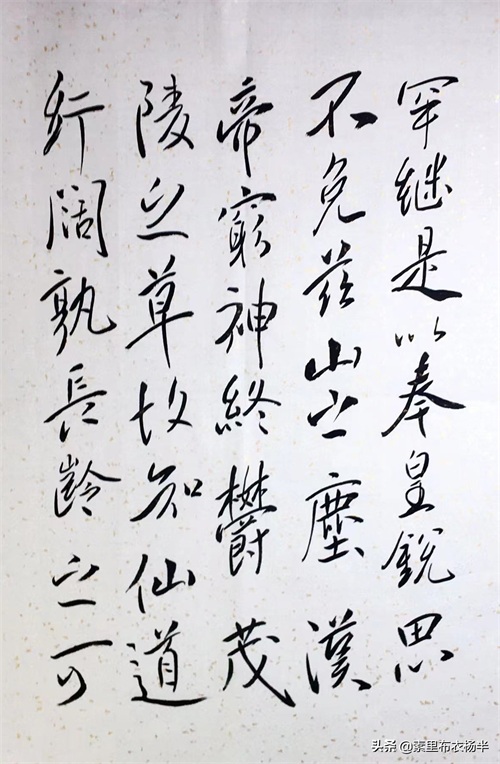 罕继是以秦皇銳思
不免茲山之塵漢
帝窮神終欝茂
陵之草故知仙道
紆闊孰長齡之可
头条 @里布衣杨半